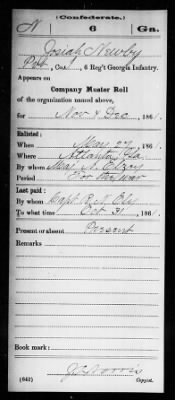 (Confederate.)
N 6 Ga.
Josiah Newby
Pvt, Co. 6 Reg't Georgia Infantry.
Appears on
Company Muster Roll
of the organization named above,
for Nov & Dec, 1861.
Enlisted:
When May 27, 1861.
Where Atlanta, Ga.
By whom Maj. A. Elzey
Period For the war
Last paid:
By whom Capt. R. T. Ely
To what time Oct 31, 1861.
Present or absent Present
Remarks:
Book mark:
(642) Copyist.